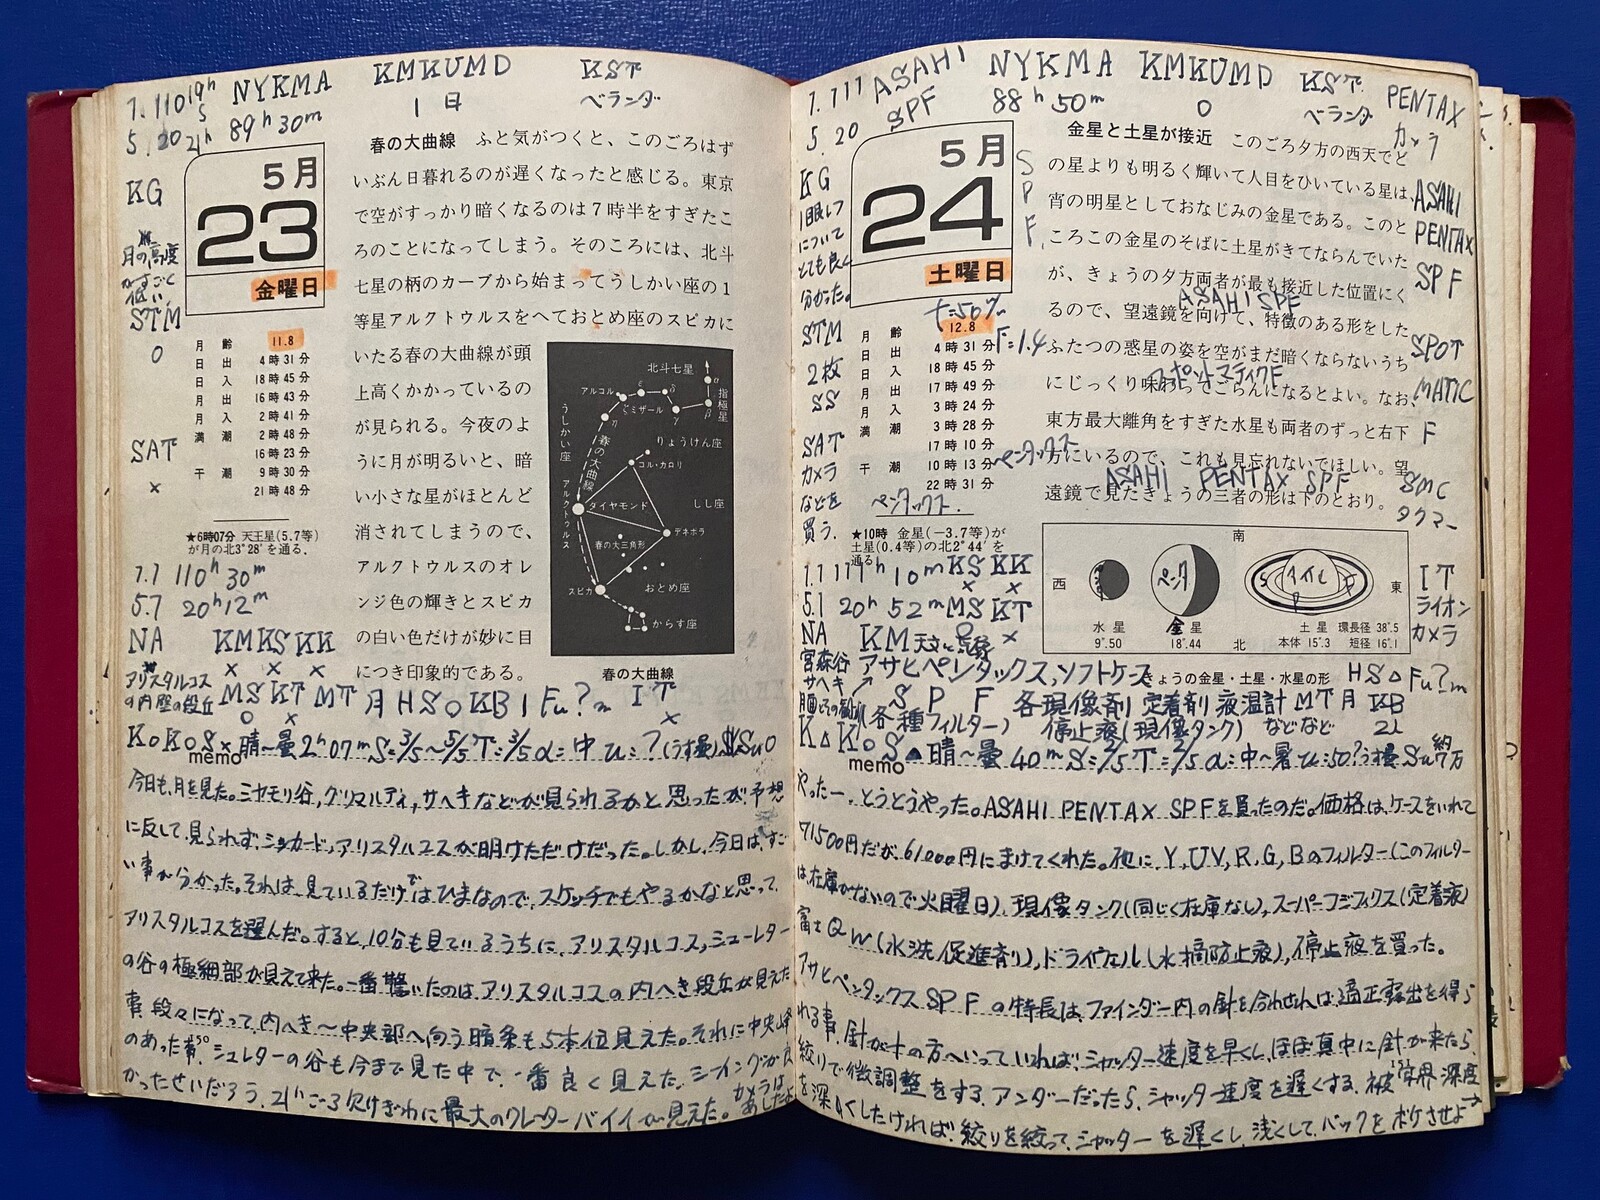 NYKMA KMKUMD KST
1日 ベランダ
5.20 21h 89h30m
KG
5月
23
金曜日
月の高度
がすごく
低い。
STM
○
SAT
×
月齢 11.8
日出 4時31分
日入 18時45分
月出 16時43分
月入 2時41分
満潮 2時48分
16時23分
干潮 9時30分
21時48分
★6時07分 天王星(5.7等)
が月の北3°28′を通る.
7.7 110h30m
5.7 20h12m
NA KM KS KK
× × ×
春の大曲線 ふと気がつくと、このごろはず
いぶん日暮れるのが遅くなったと感じる。東京
で空がすっかり暗くなるのは7時半をすぎたこ
ろのことになってしまう。そのころには、北斗
七星の柄のカーブから始まってうしかい座の1
等星アルクトウルスをへておとめ座のスピカに
いたる春の大曲線が頭
上高くかかっているの
が見られる。今夜のよ
うに月が明るいと、暗
い小さな星がほとんど
消されてしまうので、
アルクトウルスのオレ
ンジ色の輝きとスピカ
の白い色だけが妙に目
につき印象的である。
北斗七星
アルコル
ミザール
指極星
α
β
γ
δ
ε
ζ
η
うしかい座
春の大曲線
りょうけん座
コル・カロリ
アルクトゥルス
ダイヤモンド
しし座
デネボラ
春の大三角形
おとめ座
スピカ
からす座
春の大曲線
アリスタルコス
の内壁の段丘 MS KT MT 月 HS○ KB1 Fu?m IT
○ × ×
K○K○S× 晴〜曇 2h07m S=3/5〜5/5 T=3/5 α=中 u=?(うす曇) $Su0
memo
今日も、月を見た。ミヤモリ谷,グリマルディ,サヘキなどが見られるかと思ったが予想
に反して、見られず、シッカード,アリスタルコスが明けただけだった。しかし、今日は、すご
い事が分かった。それは、見ているだけではひまなので、スケッチでもやるかなと思って、
アリスタルコスを選んだ。すると、10分も見ているうちに、アリスタルコス,シューレター
の谷の極細部が見えて来た。一番驚いたのはアリスタルコスの内へき段丘が見えた
事、段々になって、内へき〜中央部へ向う暗条も5本位見えた。それに中央峰
のあった事、シュレターの谷も今まで見た中で、一番良く見えた。シーイングが良
かったせいだろう、21hごろ欠けぎわに最大のクレーターバイイが見えた。
7.111 ASAHI NYKMA KMKUMD KST PENTAX
5.20 SPF 88h50m 0 ベランダ カメラ
KG
1眼レフ
について
とても良く
分かった。
STM
2枚
SS
SAT
カメラ
などを
買う.
5月
24
土曜日
S
P
F.
f=50%
F=1.4
月齢 12.8
日出 4時31分
日入 18時45分
月出 17時49分
月入 3時24分
満潮 3時28分
17時10分
干潮 10時13分
22時31分
ペンタックス
ペンタックス.
★10時 金星(−3.7等)が
土星(0.4等)の北2°44′を
通る.
金星と土星が接近 このごろ夕方の西天でど
の星よりも明るく輝いて人目をひいている星は、
宵の明星としておなじみの金星である。このと
ころこの金星のそばに土星がきてならんでいた
が、きょうの夕方両者が最も接近した位置にく
るので、望遠鏡を向けて、特徴のある形をした
ふたつの惑星の姿を空がまだ暗くならないうち
にじっくり味わってごらんになるとよい。なお、
東方最大離角をすぎた水星も両者のずっと右下
方にいるので、これも見忘れないでほしい。望
遠鏡で見たきょうの三者の形は下のとおり。
ASAHI SPF
スポットマティックF
ASAHI PENTAX SPF
ASAHI
PENTAX
SPF
SPOT
MATIC
F
SMC
タクマー
南
西
東
北
ペンタ
水星
9″.50
金星
18″.44
土星 環長径 38″.5
本体 15″.3 短径 16″.1
きょうの金星・土星・水星の形
IT
ライオン
カメラ
7.7 111h10m KS KK
× ×
5.1 20h52m MS KT
○ ×
NA KM天文と気象
宮森谷 アサヒペンタックス,ソフトケース HS△ Fu?m
サヘキ S P F 各現像剤 定着剤 液温計 MT 月 KB
各種フィルター) 停止液(現像タンク) などなど 21
K△K○S▲ 晴〜曇 40m S=2/5 T=2/5 α=中〜暑 u=50?うす曇 Su約7万
memo
やったー、とうとうやった。ASAHI PENTAX SPFを買ったのだ。価格は、ケースをいれて
71500円だが、61000円にまけてくれた。他に、Y,UV,R,G,Bのフィルター(このフィルター
は、在庫がないので火曜日)、現像タンク(同じく在庫なし)、スーパーフジフィクス(定着液)
富士QW(水洗促進剤),ドライウェル(水摘防止液),停止液を買った。
アサヒペンタックスSPFの特長は、ファインダー内の針を合わせれば、適正露出を得ら
れる事、針が+の方へいっていれば、シャッター速度を早くし、ほぼ真中に針が来たら、
絞りで微調整をする。アンダーだったら、シャッター速度を遅くする。被写界深度
を深くしたければ、絞りを絞って、シャッターを遅くし、浅くして、バックをボケさせよ→